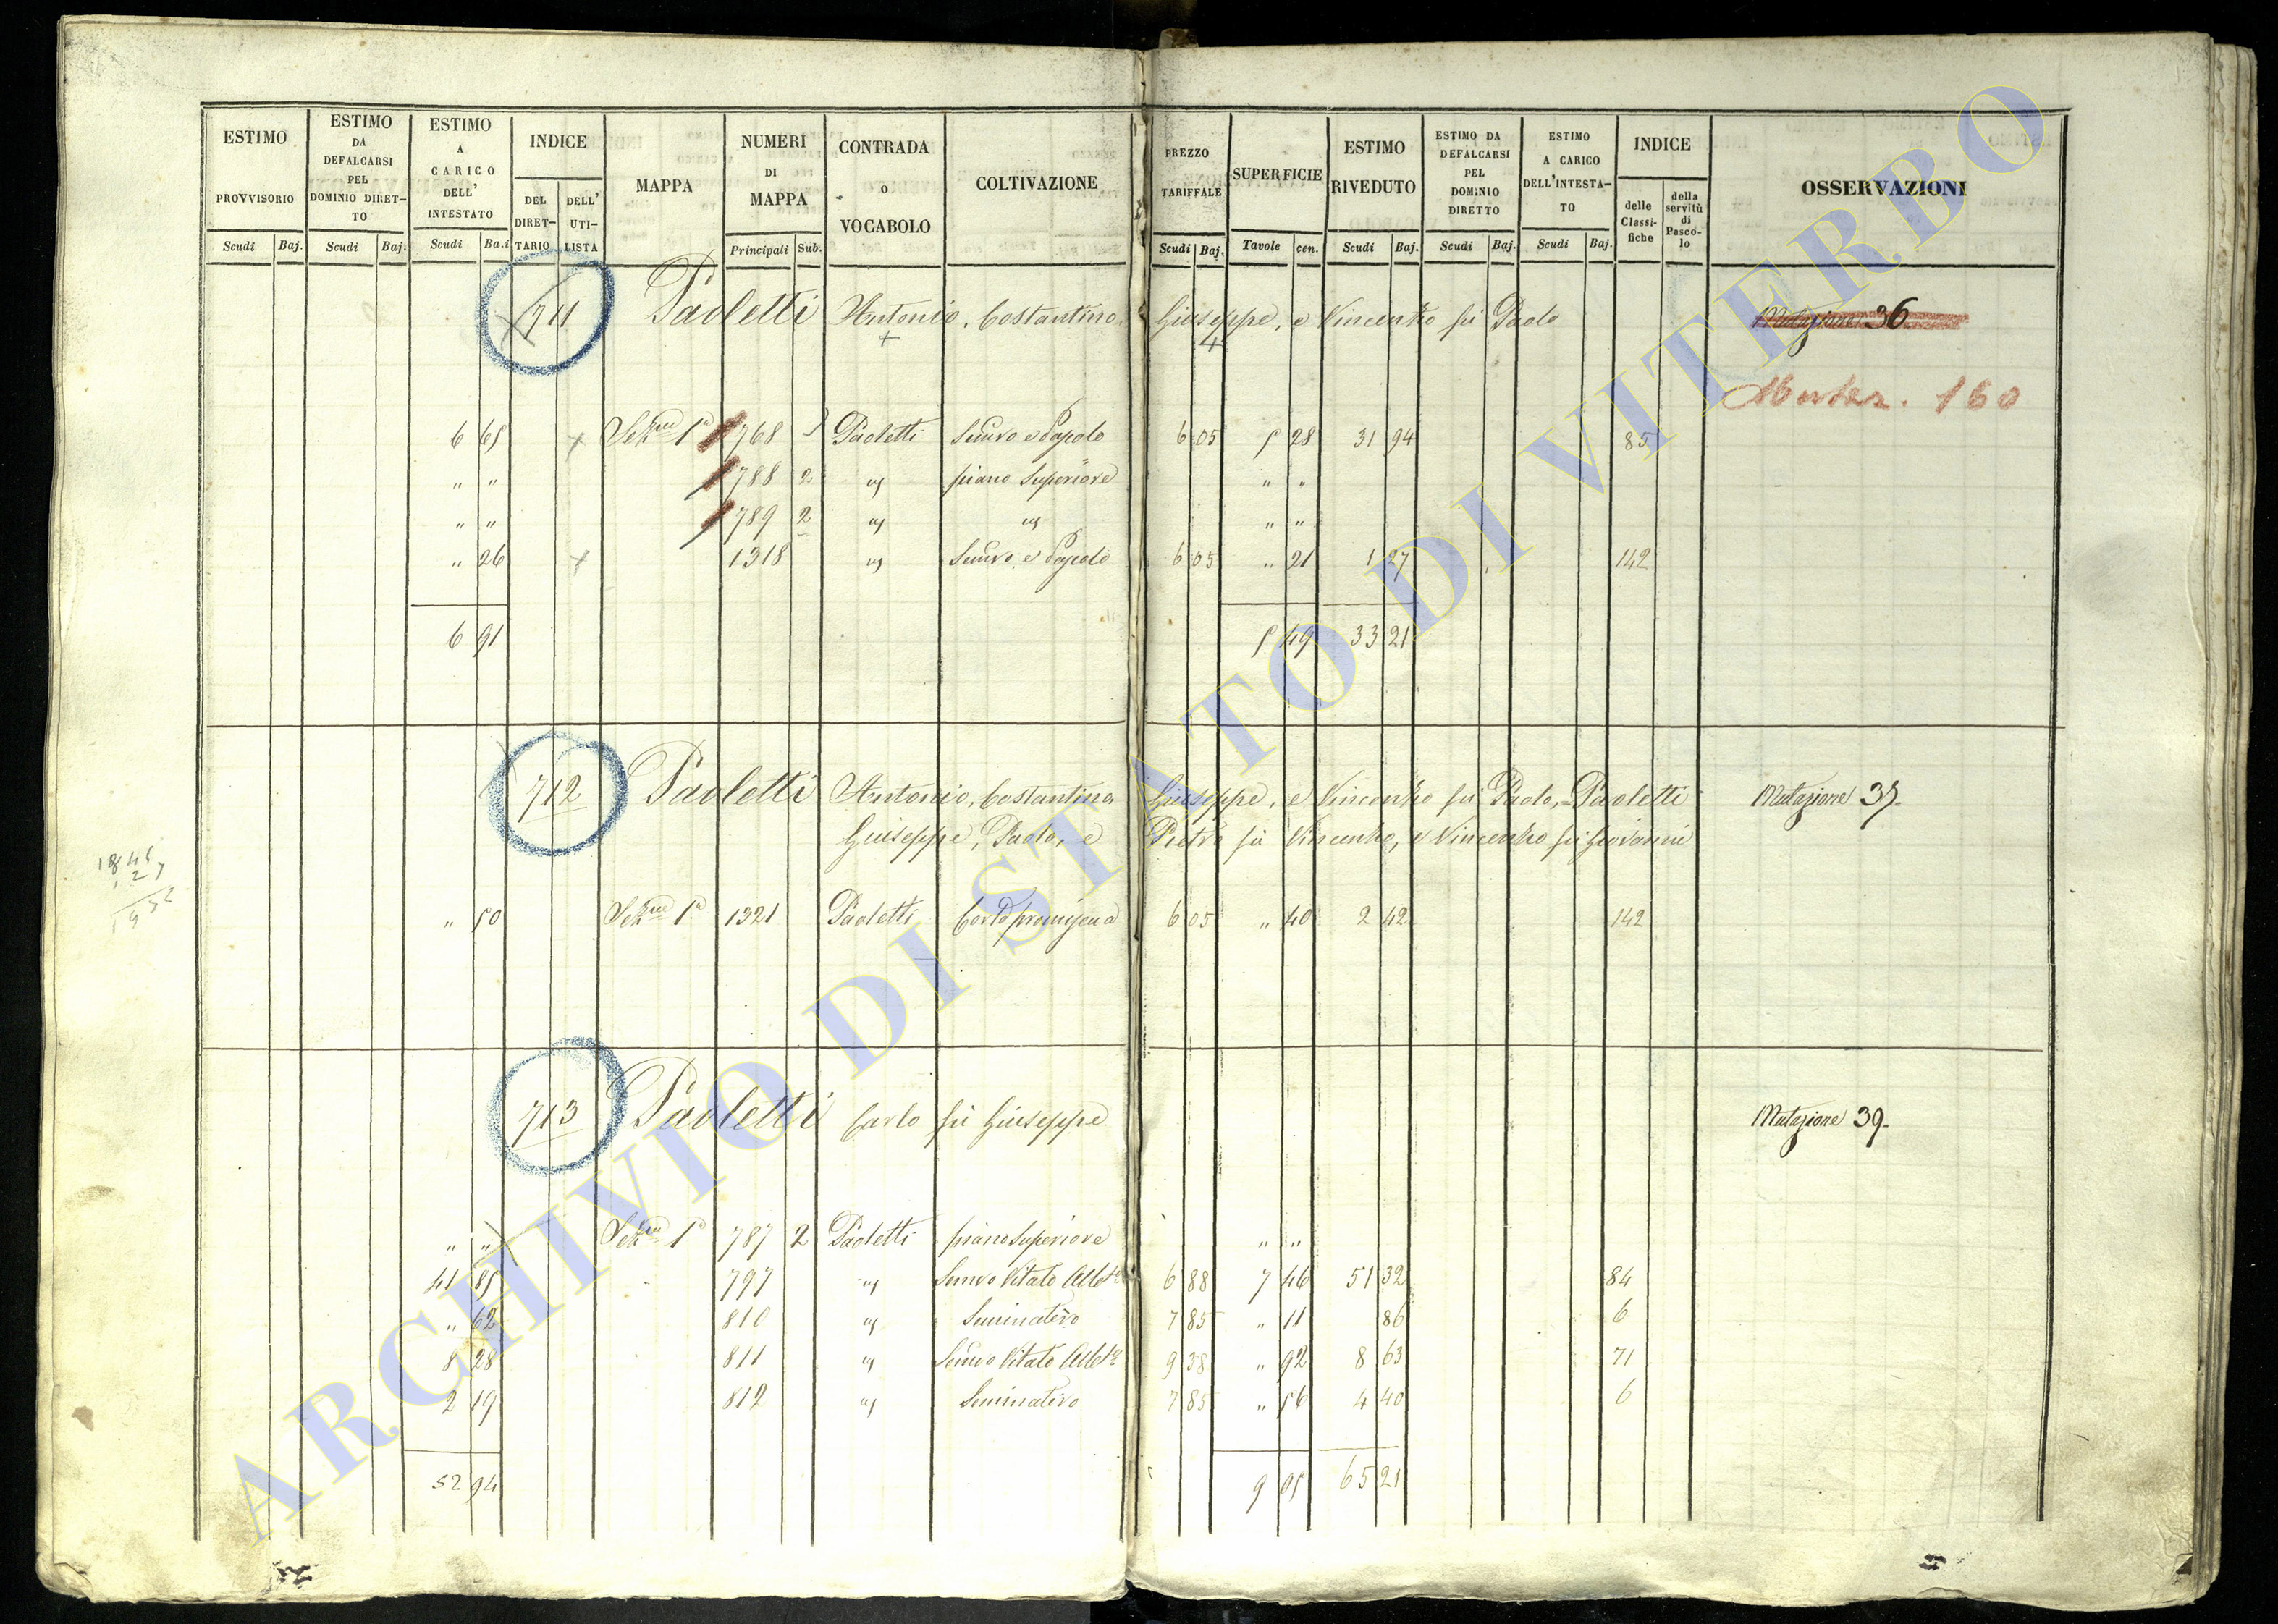 ESTIMO PROVVISORIO
ESTIMO DA DEFALCARSI PEL DOMINIO DIRET-TO
ESTIMO A CARICO DELL' INTESTATO
INDICE
DEL DIRET-TARIO
DELL' UTI-LISTA
MAPPA
NUMERI DI MAPPA
CONTRADA O VOCABOLO
COLTIVAZIONE
PREZZO TARIFFALE
SUPERFICIE
ESTIMO RIVEDUTO
ESTIMO DA DEFALCARSI PEL DOMINIO DIRETTO
ESTIMO A CARICO DELL'INTESTA-TO
INDICE
delle Classi-fiche
della servitù di Pasco-lo
OSSERVAZIONI
Scudi Baj. Scudi Baj. Scudi Ba.i Principali Sub. Scudi Baj. Tavole cen. Scudi Baj. Scudi Baj. Scudi Baj.
711 Paoletti Antonio, Costantino Giuseppe, e Vincenzo fu Paolo Mutazione 36
160
6 65 Sezne 1a 768 Paoletti Semvo e Pascolo 6 05 5 28 31 94 85
" " 788 2 piano Superiore " "
" " 789 2 " "
" 26 1318 Semvo, e Pascolo 6 05 " 21 1 27 142
6 91 5 49 33 21
712 Paoletti Antonio, Costantino Giuseppe, e Vincenzo fu Paolo, Paoletti Mutazione 37.
Giuseppe, Paolo, e Pietro fu Vincenzo, e Vincenzo fu Giovanni
" 50 Sezne 1a 1321 Paoletti Corte promiscua 6 05 " 40 2 42 142
713 Paoletti Carlo fu Giuseppe Mutazione 39.
" " Sezne 1a 787 2 Paoletti piano superiore " "
41 85 797 Semvo Vitato Albto 6 88 7 46 51 32 84
" 62 810 Seminativo 7 85 " 11 86 6
8 28 811 Semvo Vitato Albto 9 38 " 92 8 63 71
2 19 812 Seminativo 7 85 " 56 4 40 6
52 94 9 05 65 21
ARCHIVIO DI STATO DI VITERBO